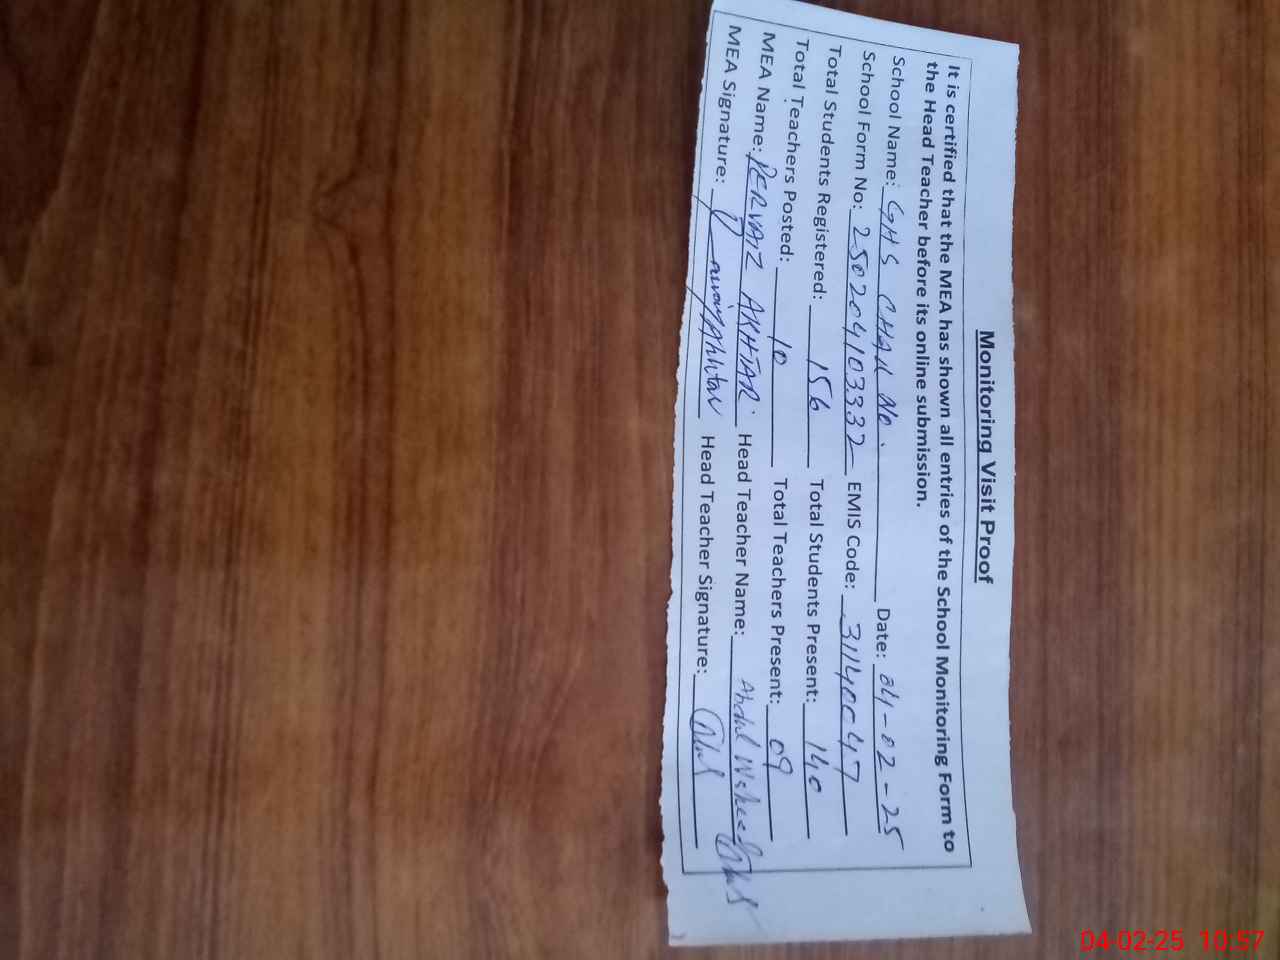 Monitoring Visit Proof
It is certified that the MEA has shown all entries of the School Monitoring Form to
the Head Teacher before its online submission.
School Name: GHS CHAK No. Date: 04-02-25
School Form No: 250204103332 EMIS Code: 31140047
Total Students Registered: 156 Total Students Present: 140
Total Teachers Posted: 10 Total Teachers Present: 09
MEA Name: PERVAIZ AKHTAR. Head Teacher Name: Abdul Waheed
MEA Signature: Pervaiz Akhtar Head Teacher Signature:
04-02-25 10:57